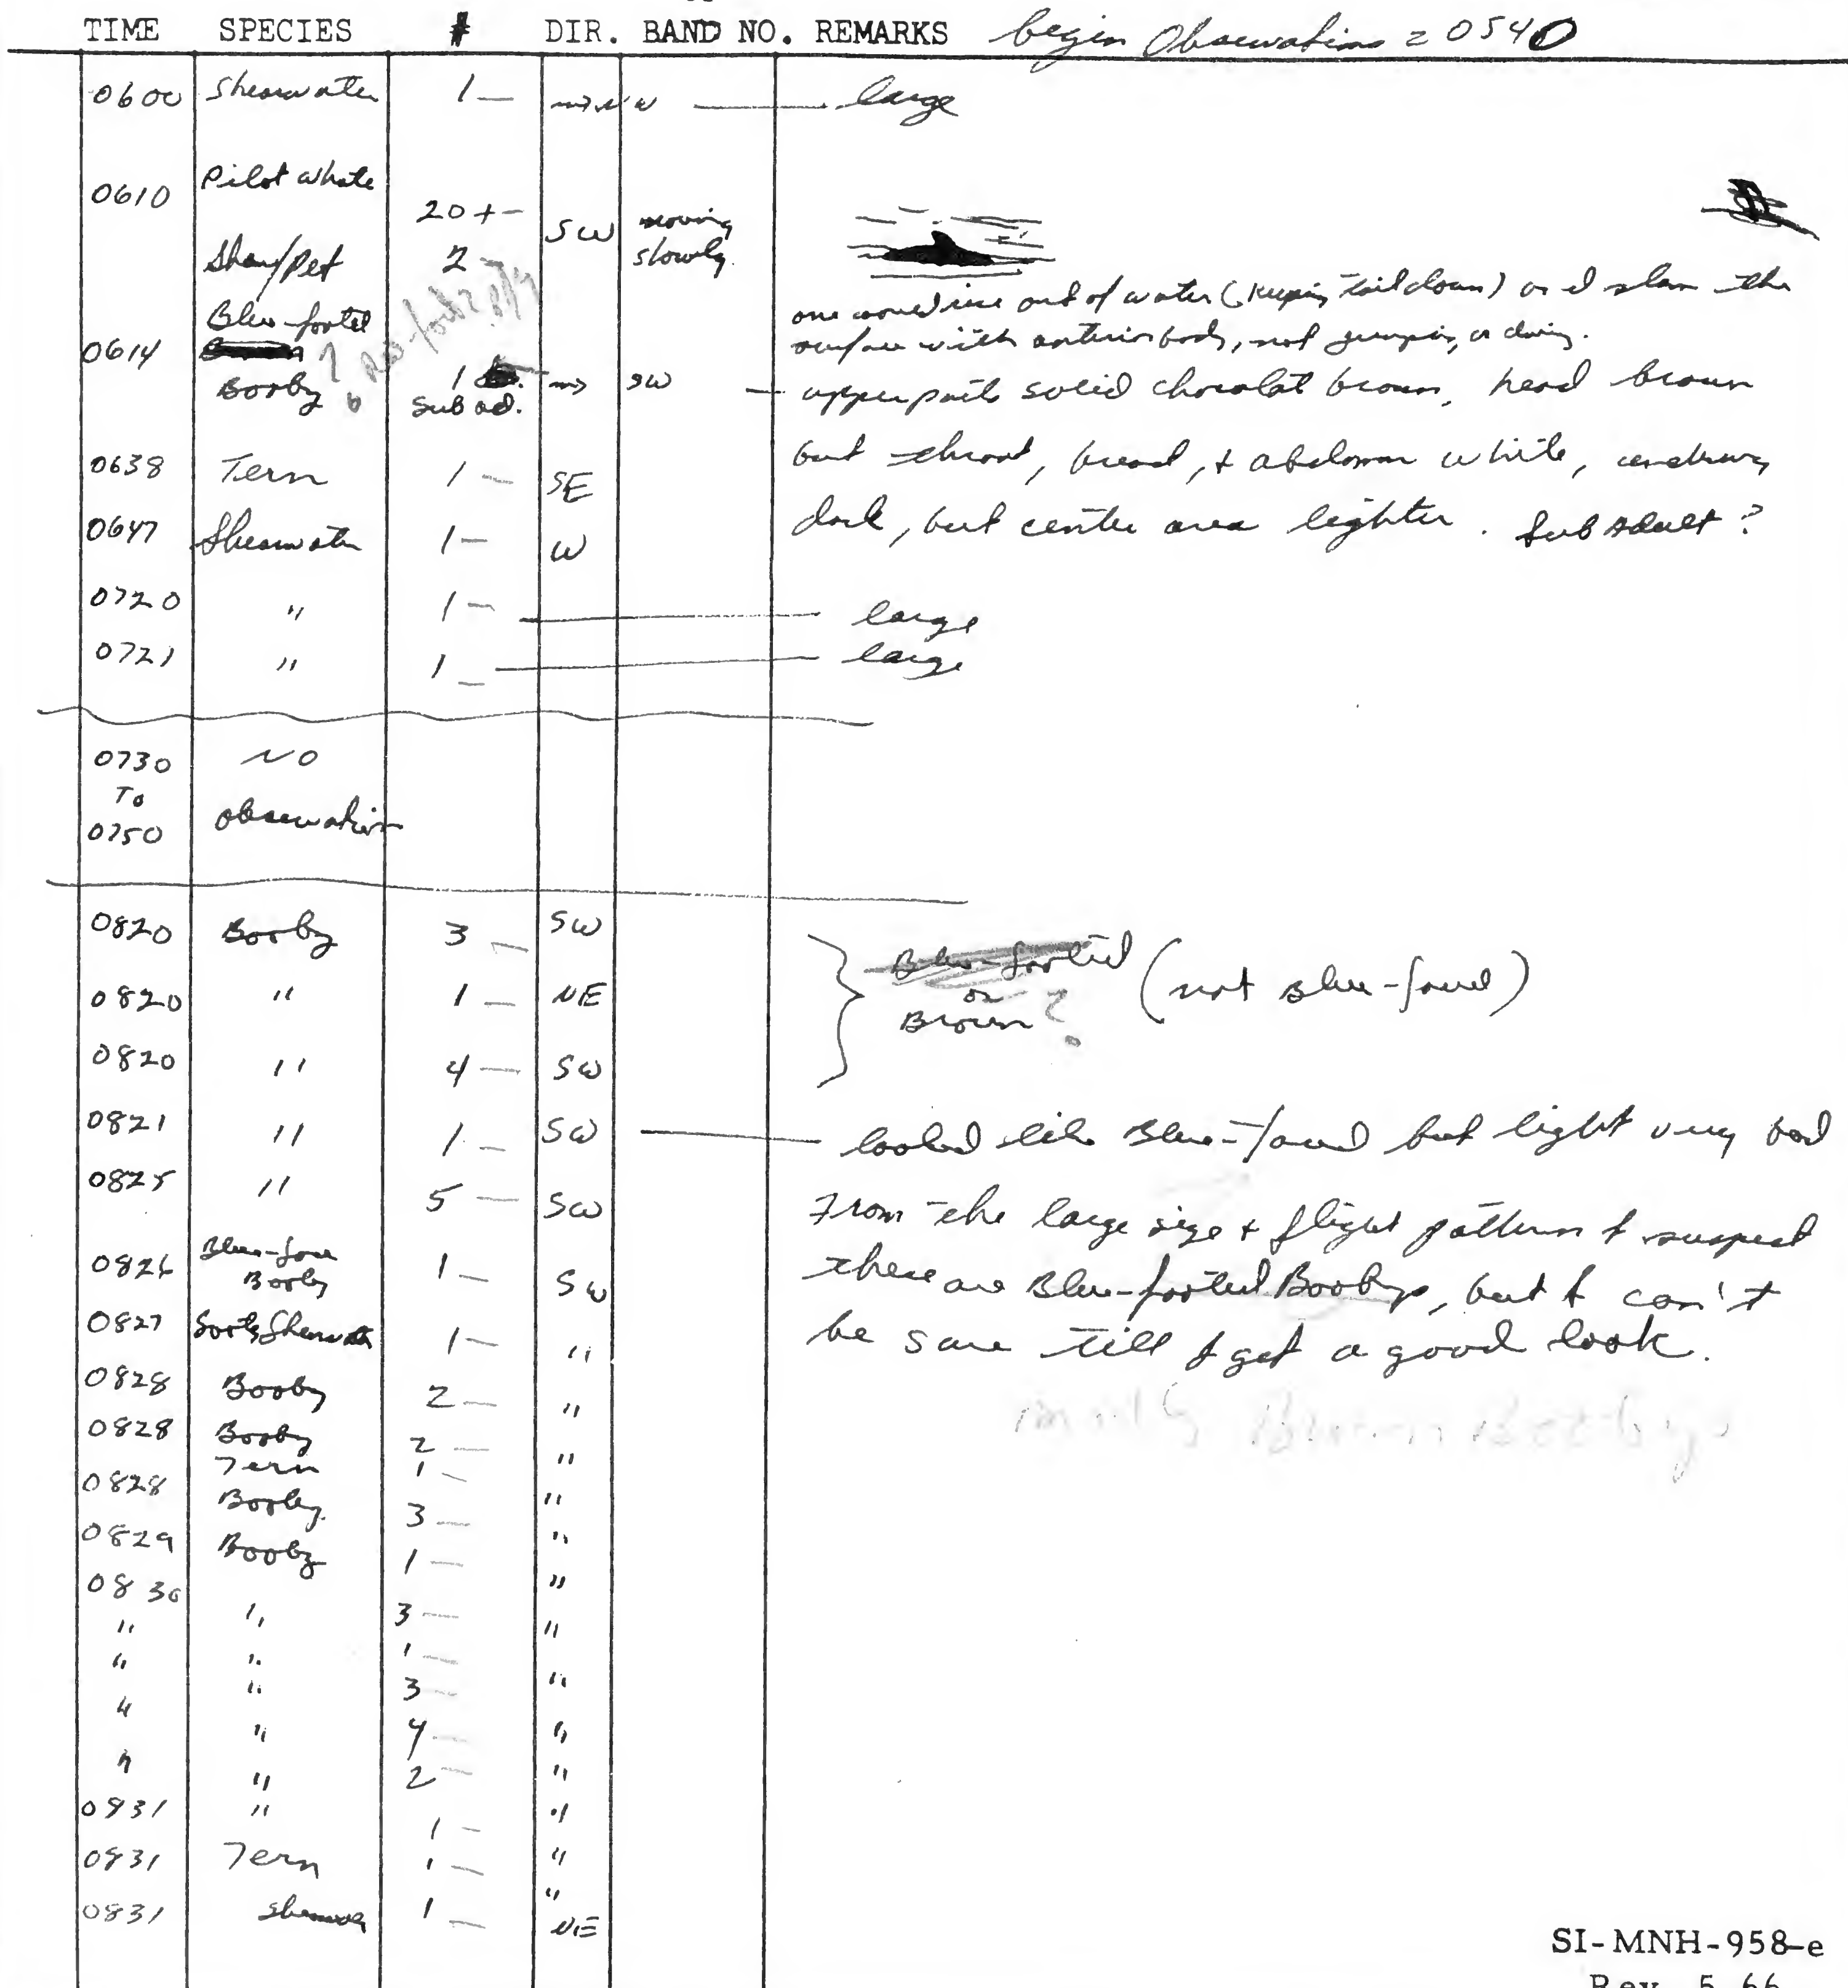 TIME SPECIES # DIR. BAND NO. REMARKS begin Observations = 0540
0600 Shearwater 1 — → NW — large
0610 Pilot Whale 20+ — SW moving slowly.
Shear/Pet 2 —
one would rise out of water (keeping tail down) and slam the
surface with anterior body, not jumping or diving.
0614 Blue-footed Booby ? 1 subad. → SW — upperparts solid chocolat brown, head brown
but throat, breast, + abdomen white, underwing
dark, but center area lighter. Sub Adult?
0638 Tern 1 — SE
0647 Shearwater 1 — W
0720 " 1 — large
0721 " 1 — large
0730 To 0750 No observation
0820 Booby 3 — SW
0820 " 1 — NE
0820 " 4 — SW
} Blue-footed or Brown? (not Blue-faced)
0821 " 1 — SW — looked like Blue-faced but light very bad
0825 " 5 — SW
From the large size + flight pattern I suspect
these are Blue-footed Boobys, but I can't
be sure till I get a good look.
Brown Boobys
0826 Blue-face Booby 1 — SW
0827 Sooty Shearwater 1 — "
0828 Booby 2 — "
0828 Booby 2 — "
Tern 1 —
0828 Booby 3 — "
0829 Booby 1 — "
0830 "
" " 3 — "
" " 1 —
" 3 — "
" " 4 — "
" " 2 — "
0831 " 1 — "
0831 Tern 1 — "
0831 Shearwater 1 — " NE
SI-MNH-958-e
Rev. 5-66